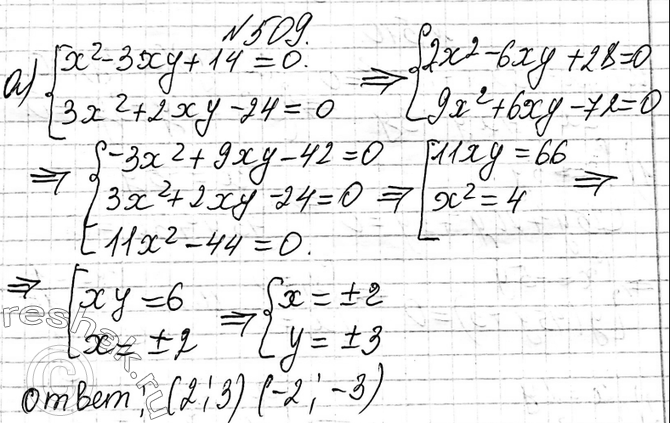 №509.
а) { x² - 3xy + 14 = 0. => { 2x² - 6xy + 28 = 0
3x² + 2xy - 24 = 0 9x² + 6xy - 72 = 0
=> { -3x² + 9xy - 42 = 0
3x² + 2xy - 24 = 0 => [ 11xy = 66
[ 11x² - 44 = 0. x² = 4 =>
=> [ xy = 6 => { x = ±2
x = ±2 y = ±3
ответ; (2; 3) (-2; -3)
reshak.ru